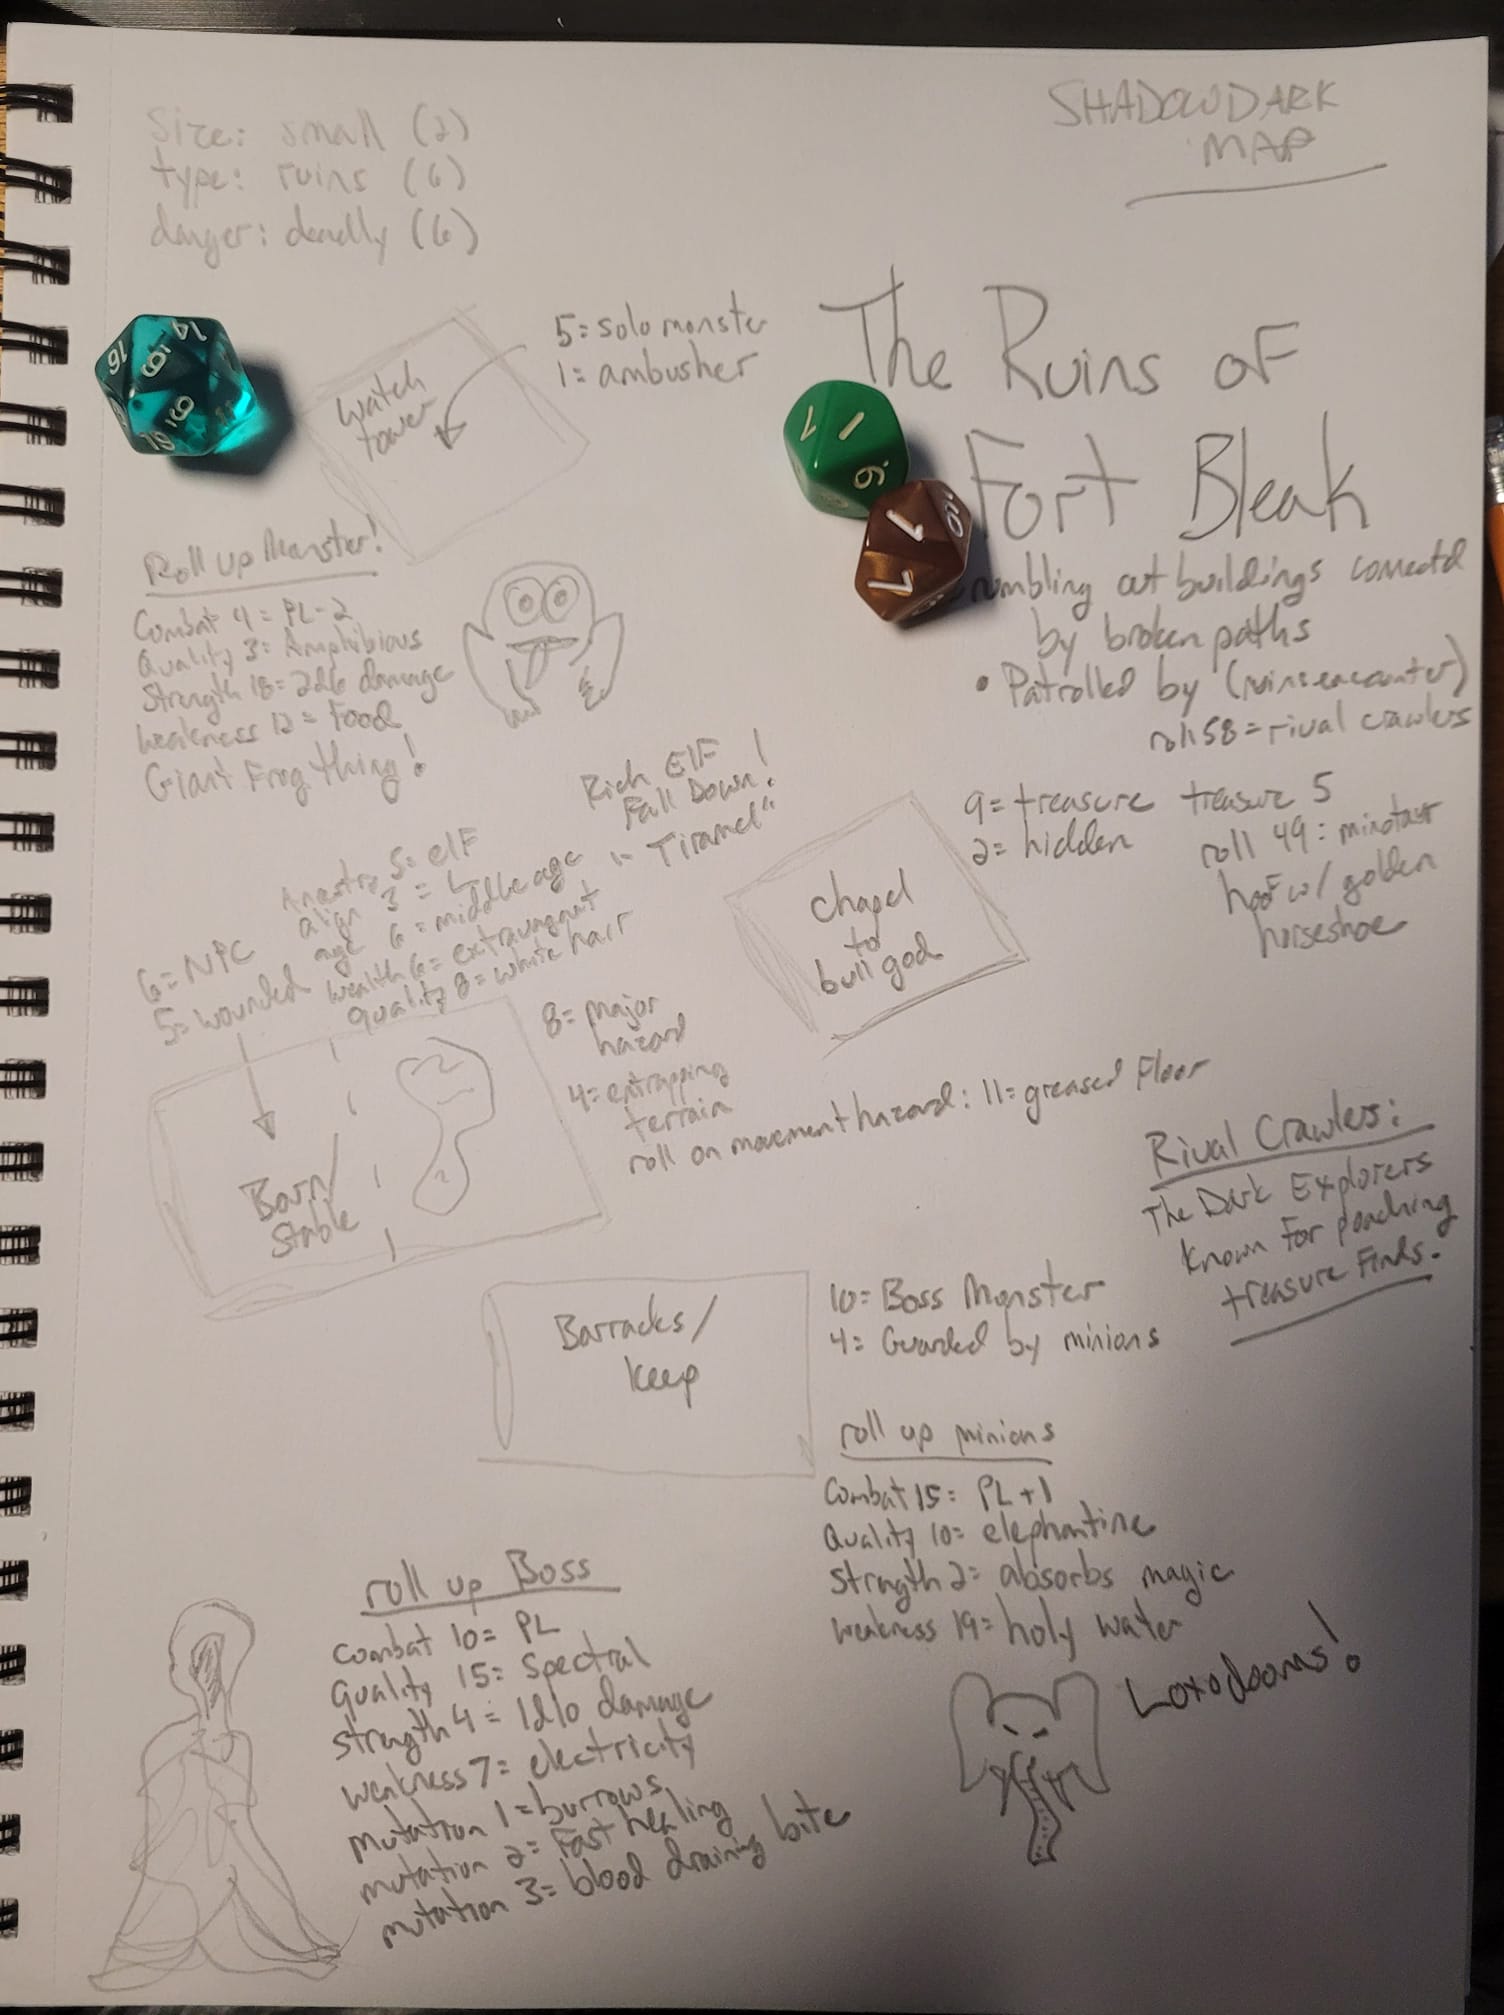 SHADOWDARK
MAP
Size: small (2)
type: ruins (6)
danger: deadly (6)
The Ruins of
Fort Bleak
rumbling out buildings connected
by broken paths
• Patrolled by (ruins encounter)
roll 58 = rival crawlers
5 = solo monster
1 = ambusher
Watch
tower
Roll up Monster!
Combat 4 = PL-2
Quality 3 = Amphibious
Strength 18 = 2d6 damage
Weakness 12 = Food
Giant Frog thing!
Rich Elf
Fall Down!
"Tiramel"
6 = NPC
5 = wounded
Ancestry 5 = elf
align 3 = L
age 6 = middle age
wealth 6 = extravagant
quality 8 = white hair
Barn/
Stable
8 = major
hazard
4 = entrapping
terrain
roll on movement hazard: 11 = greased Floor
9 = treasure
2 = hidden
treasure 5
roll 49: minotaur
hoof w/ golden
horseshoe
chapel
to
bull god
Rival Crawlers:
The Dark Explorers
known for poaching
treasure finds.
Barracks/
keep
10 = Boss Monster
4 = Guarded by minions
roll up minions
Combat 15 = PL+1
Quality 10 = elephantine
Strength 2 = absorbs magic
weakness 19 = holy water
Loxodooms!
roll up Boss
Combat 10 = PL
Quality 15 = Spectral
strength 4 = 1d10 damage
weakness 7 = electricity
mutation 1 = burrows
mutation 2 = fast healing
mutation 3 = blood draining bite
16
14
19
9
19
1
7
6.
1
7